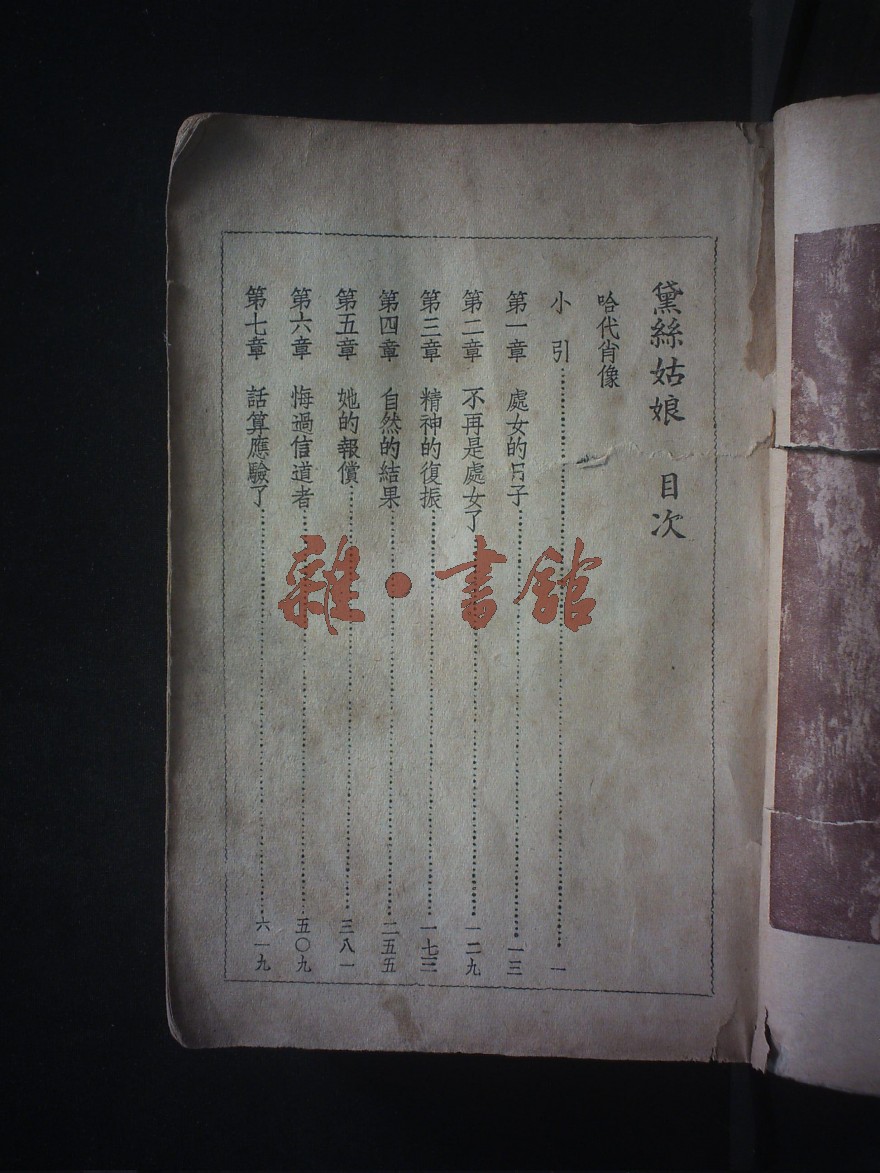 黛絲姑娘 目次
哈代肖像
小引……一
第一章 處女的日子……一三
第二章 不再是處女了……一二九
第三章 精神的復振……一七三
第四章 自然的結果……二五五
第五章 她的報償……三八一
第六章 悔過信道者……五〇九
第七章 話算應驗了……六一九
雜·書館